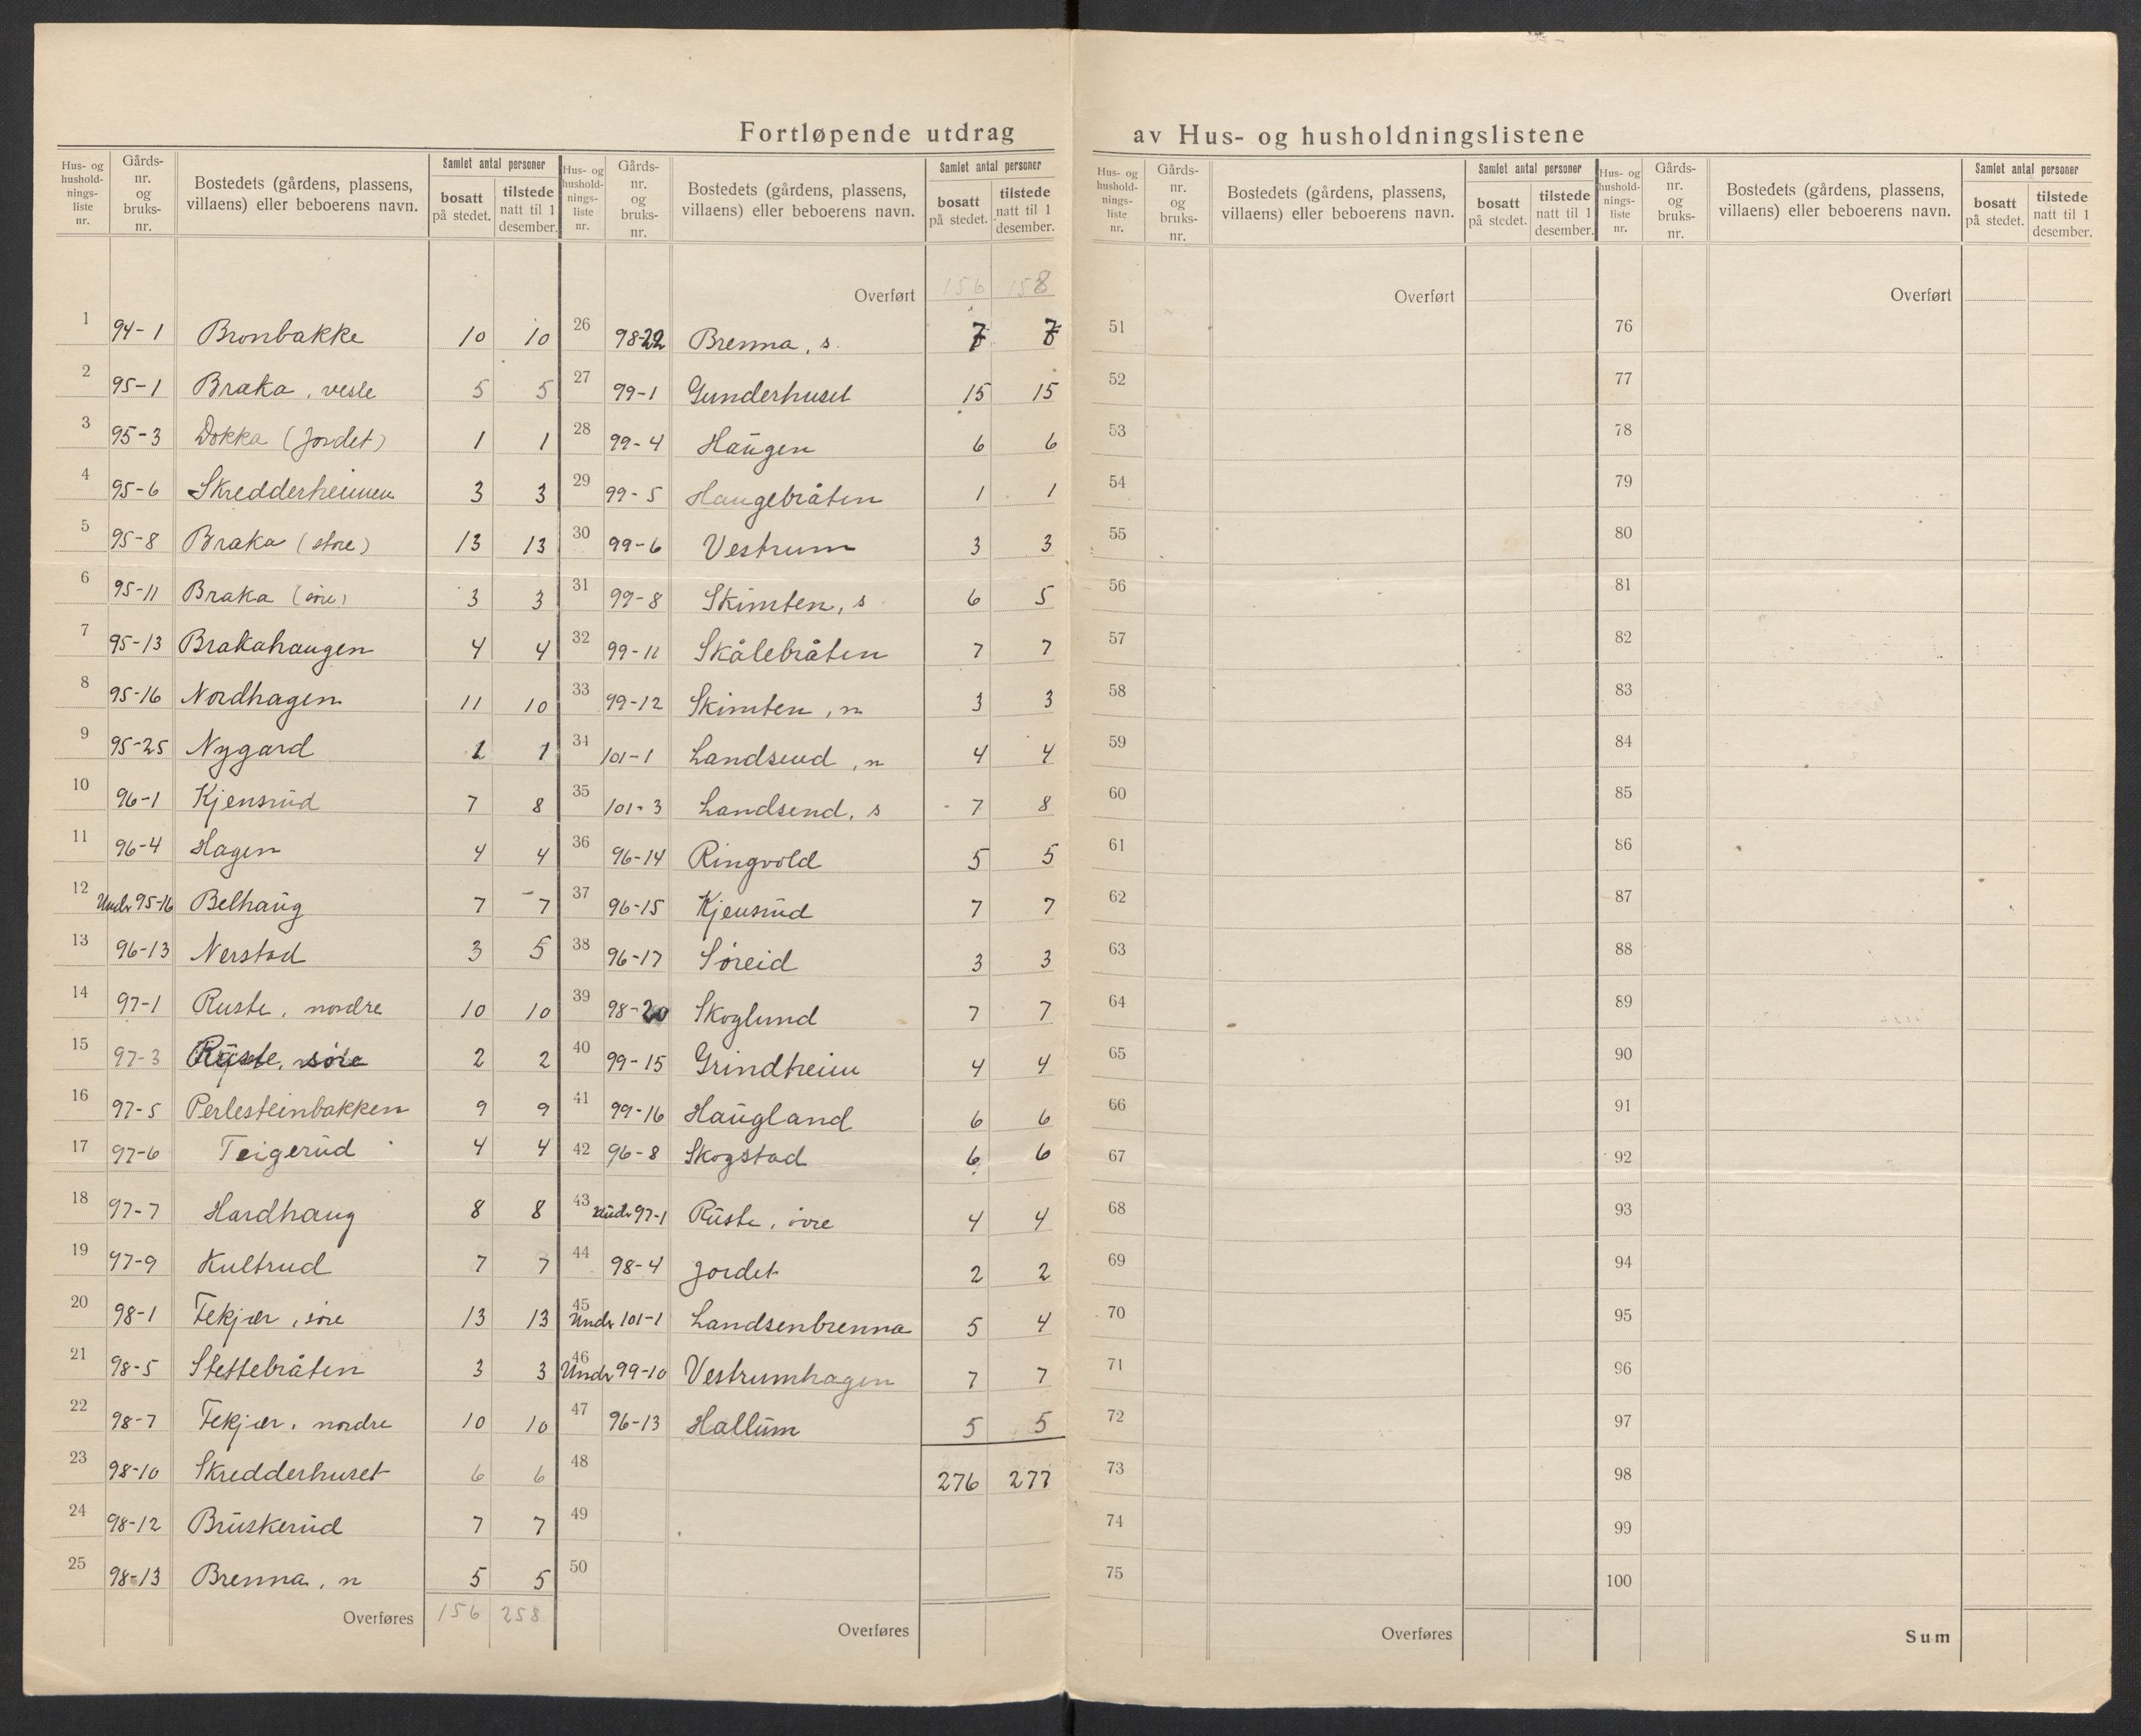 Fortløpende utdrag av Hus- og husholdningslistene
Hus- og husholdningsliste nr. | Gårdsnr. og bruksnr. | Bostedets (gårdens, plassens, villaens) eller beboerens navn. | Samlet antal personer | bosatt på stedet. | tilstede natt til 1 desember.
1 94-1 Bronbakke 10 10
2 95-1 Braka, vesle 5 5
3 95-3 Dokka (Jordet) 1 1
4 95-6 Skredderheimen 3 3
5 95-8 Braka (store) 13 13
6 95-11 Braka 3 3
7 95-13 Brakahaugen 4 4
8 95-16 Nordhagen 11 10
9 95-25 Nygard 1
10 96-1 Kjensrud 7 8
11 96-4 Hagen 4 4
12 Under 95-16 Belhaug 7 7
13 96-13 Nerstad 3 5
14 97-1 Ruste, nordre 10 10
15 97-3 Ruste, søre 2 2
16 97-5 Perlesteinbakken 9 9
17 97-6 Teigerud 4 4
18 97-7 Hardhaug 8 8
19 97-9 Kultrud 7 7
20 98-1 Tekjær, søre 13 13
21 98-5 Stettebråten 3 3
22 98-7 Tekjær, nordre 10 10
23 98-10 Skredderhuset 6 6
24 98-12 Bruskerud 7 7
25 98-13 Brenna, n 5 5
Overføres 156 258
Hus- og husholdningsliste nr. | Gårdsnr. og bruksnr. | Bostedets (gårdens, plassens, villaens) eller beboerens navn. | Samlet antal personer | bosatt på stedet. | tilstede natt til 1 desember.
Overført 156 158
26 98-22 Brenna, s. 7 7
27 99-1 Gunderhuset 15 15
28 99-4 Haugen 6 6
29 99-5 Haugebråten 1 1
30 99-6 Vestrum 3 3
31 99-8 Skimten, s 6 5
32 99-11 Skålebråten 7 7
33 99-12 Skimten, n 3 3
34 101-1 Landsend, n 4 4
35 101-3 Landsend, s 7 8
36 96-14 Ringvold 5 5
37 96-15 Kjensrud 7 7
38 96-17 Søreid 3 3
39 98-20 Skoglund 7 7
40 99-15 Grindheim 4 4
41 99-16 Haugland 6 6
42 96-8 Skogstad 6 6
43 Under 97-1 Ruste, øvre 4 4
44 98-4 Jordet 2 2
45 Under 101-1 Landsenbrenna 5 4
46 Under 99-10 Vestrumhagen 7 7
47 96-13 Hallum 5 5
48 276 277
49
50
Overføres
Hus- og husholdningsliste nr. | Gårdsnr. og bruksnr. | Bostedets (gårdens, plassens, villaens) eller beboerens navn. | Samlet antal personer | bosatt på stedet. | tilstede natt til 1 desember.
Overført
51
52
53
54
55
56
57
58
59
60
61
62
63
64
65
66
67
68
69
70
71
72
73
74
75
Overføres
Hus- og husholdningsliste nr. | Gårdsnr. og bruksnr. | Bostedets (gårdens, plassens, villaens) eller beboerens navn. | Samlet antal personer | bosatt på stedet. | tilstede natt til 1 desember.
Overført
76
77
78
79
80
81
82
83
84
85
86
87
88
89
90
91
92
93
94
95
96
97
98
99
100
Sum